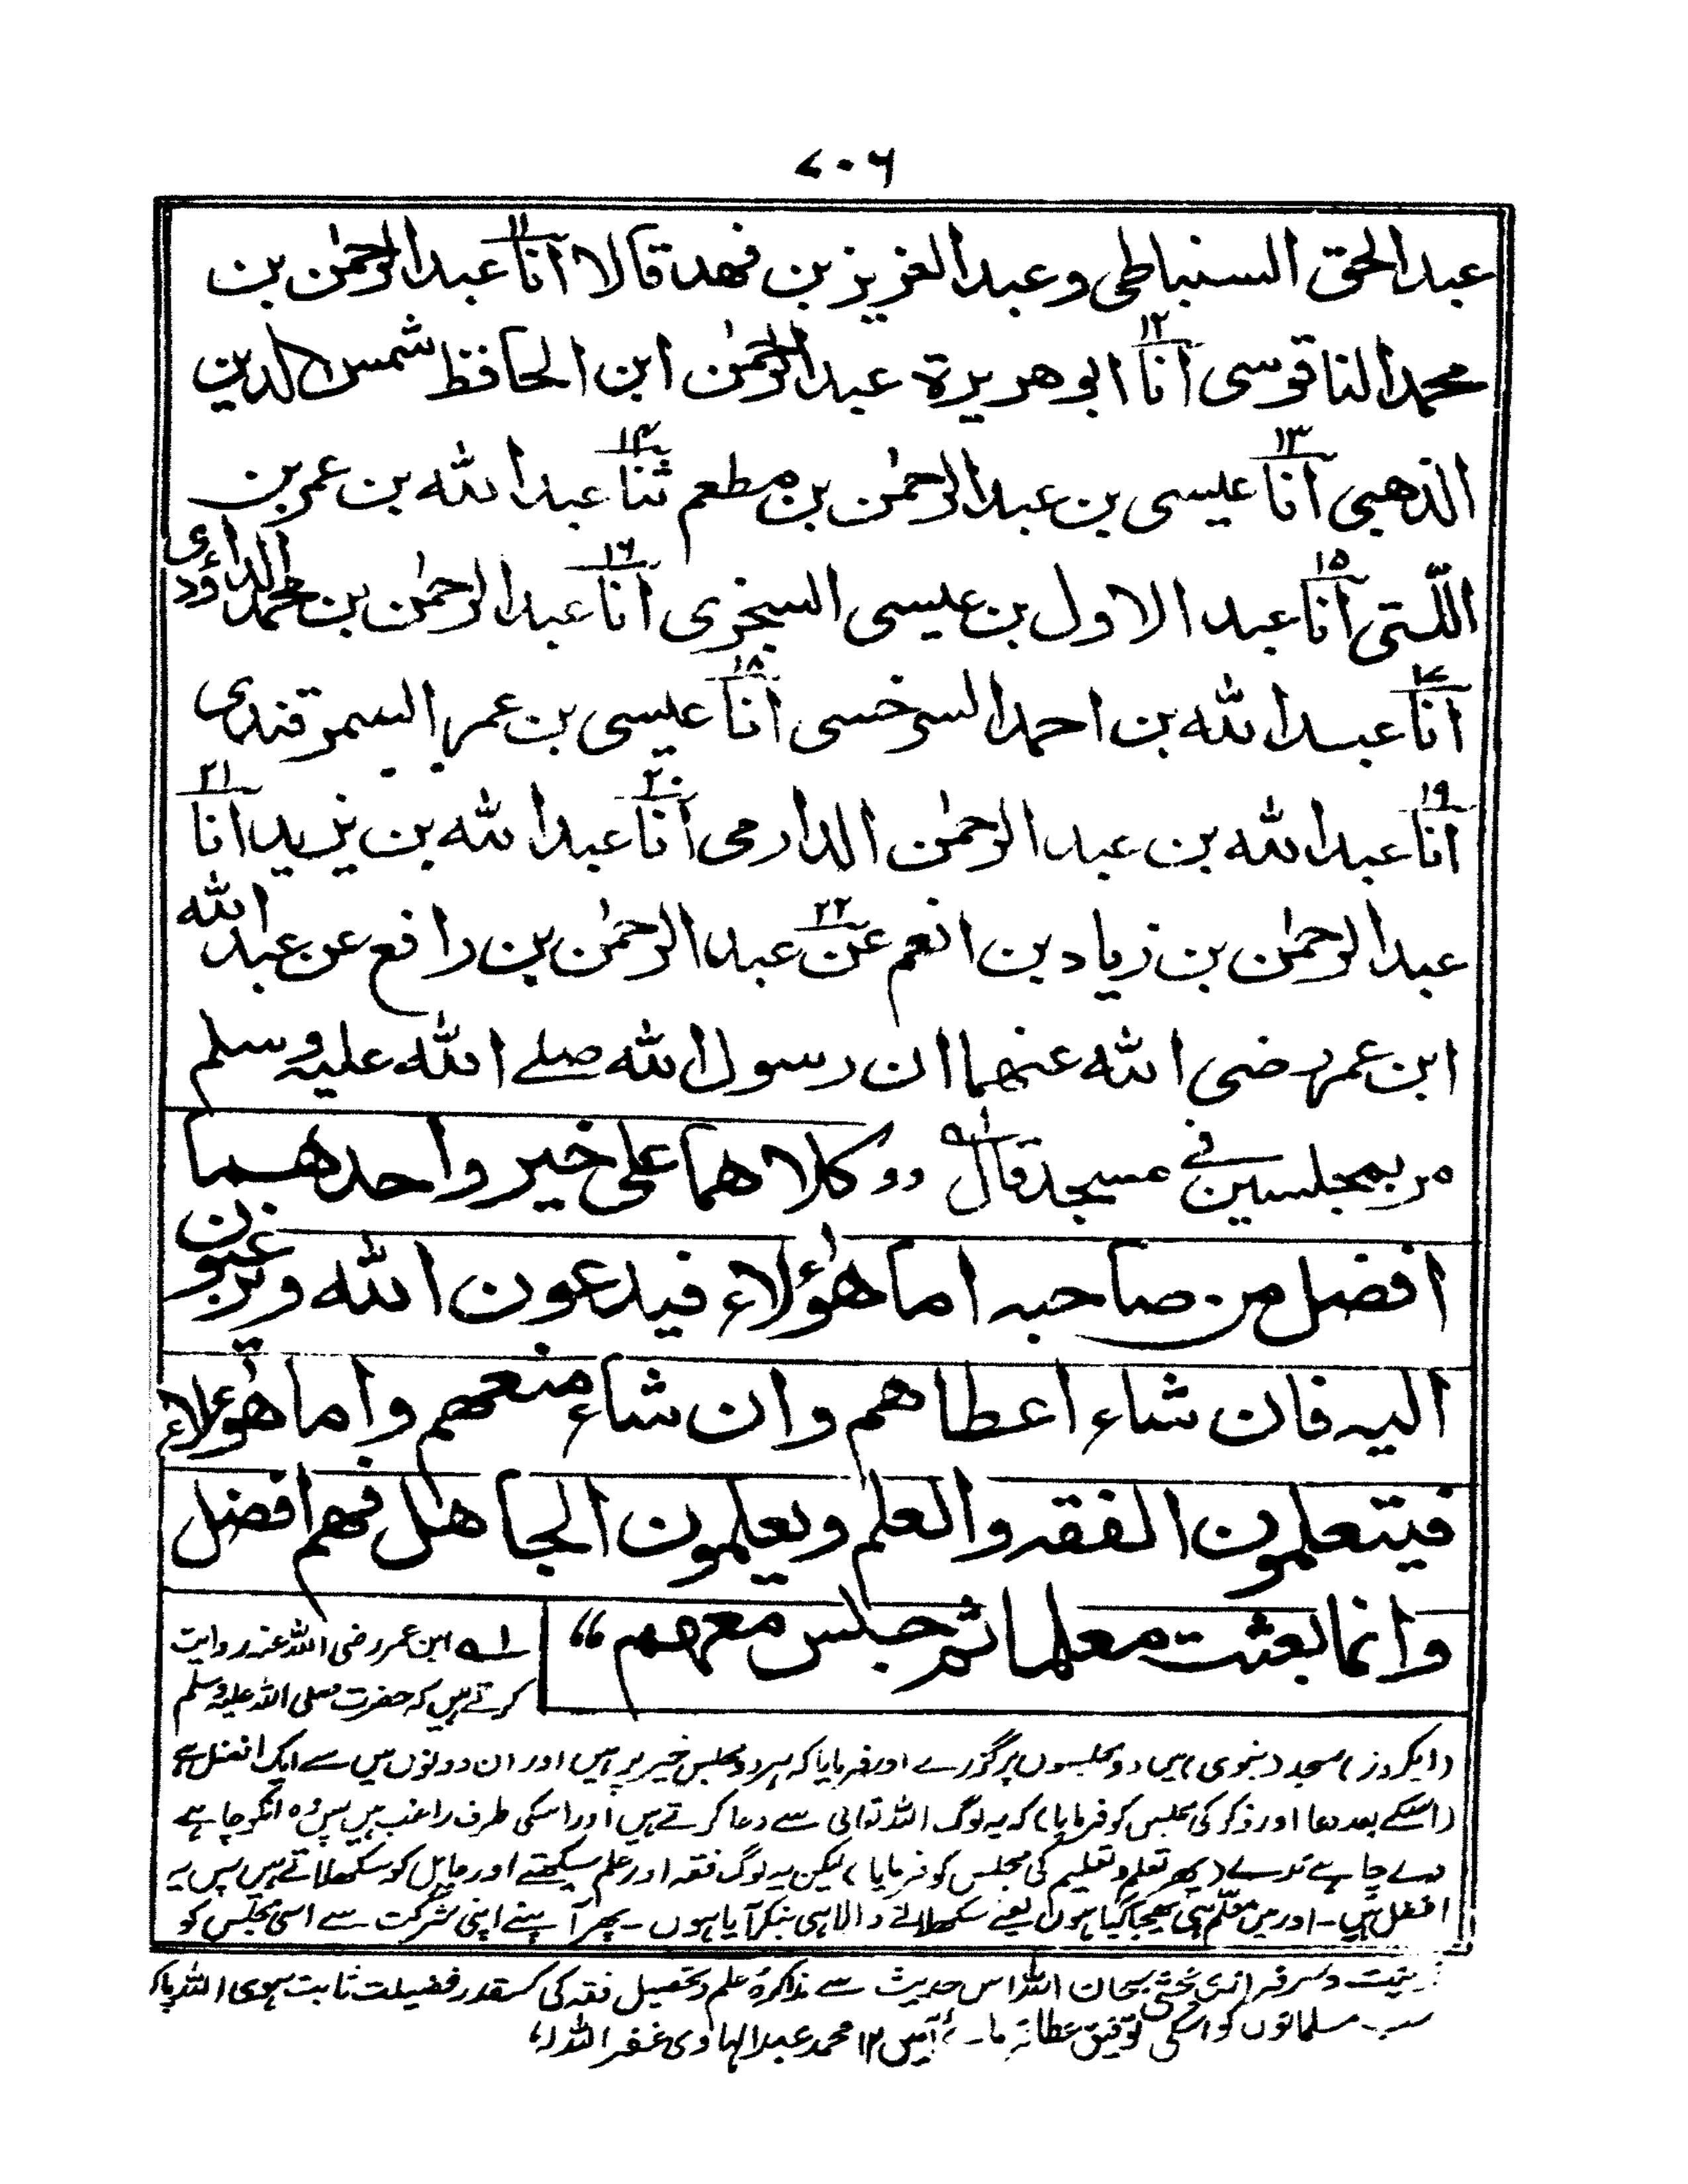 ۷۰۶
عبدالحق السنباطی وعبدالعزیز بن فهد قالا انا ۱۱ عبدالرحمٰن بن
محمد الناقوسی انا ۱۲ ابو هریرة عبدالرحمٰن ابن الحافظ شمس الدین
الذهبی انا ۱۳ عیسی بن عبدالرحمٰن بن مطعم ثنا ۱۴ عبدالله بن عمر بن
اللّتی انا ۱۵ عبد الاول بن عیسی السجزی انا ۱۶ عبدالرحمٰن بن محمد الداؤدی
انا ۱۷ عبدالله بن احمد السرخسی انا ۱۸ عیسی بن عمر السمرقندی
انا ۱۹ عبدالله بن عبدالرحمٰن الدارمی انا ۲۰ عبدالله بن یزید انا ۲۱
عبدالرحمٰن بن زیاد بن انعم عن ۲۲ عبدالرحمٰن بن رافع عن عبدالله
ابن عمر رضی الله عنهما ان رسول الله صلے الله علیه وسلم
مر بمجلسین فی مسجد قال ۱ه ,, کلاهما علی خیر واحدهما
افضل من صاحبه اما هؤلاء فیدعون الله ویرغبون
الیه فان شاء اعطاهم وان شاء منعهم واما هؤلاء
فیتعلمون الفقه والعلم ویعلمون الجاهل فهم افضل
وانما بعثت معلما ثم جلس معهم “
۱ه ابن عمر رضی الله عنہ روایت
کرتے ہیں کہ حضرت صلی اللہ علیہ وسلم
(ایکروز) مسجد (نبوی) میں دو مجلسوں پر گزرے اور فرمایا کہ ہر دو مجلس خیر پر ہیں اور ان دونوں میں سے ایک افضل ہے
(اسکے بعد دعا اور ذکر کی مجلس کو فرمایا) کہ یہ لوگ اللہ تعالی سے دعا کرتے ہیں اور اسکی طرف راغب ہیں پس وہ انکو چاہے
دے چاہے ندے (پھر تعلم وتعلیم کی مجلس کو فرمایا) لیکن یہ لوگ فقہ اور علم سیکھتے اور جاہل کو سکھلاتے ہیں پس یہ
افضل ہیں - اور میں معلّم ہی بھیجا گیا ہوں یعنے سکھلانے والا ہی بنکر آیا ہوں - پھر آپنے اپنی شرکت سے اسی مجلس کو
وسرفرازی بخشی سبحان اللہ اس حدیث سے مذاکرۂ علم وتحصیل فقہ کی کسقدر فضیلت ثابت ہوی اللہ پاک
سب مسلمانوں کو اسکی توفیق عطا فرما - آمین ۱۲ محمد عبدالهادی غفر اللہ لہ